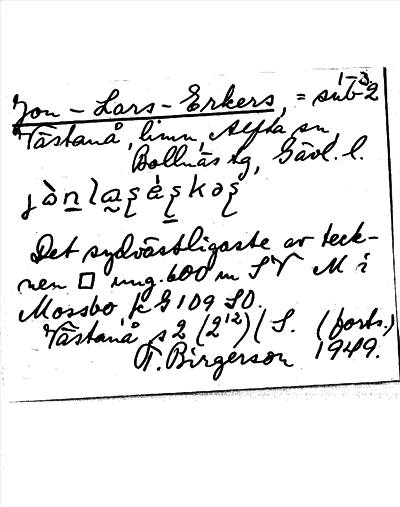 1-3.
Jon-Lars-Erkers, = sub 2
Västanå, limn, Alfta sn,
Bollnäs tg, Gävl. l.
Det sydvästligaste av teck-
nen □ ung. 600 m SV M i
Mossbo, k G 109 SO.
Västanå s 2 (2¹²) (S. (forts.)
T. Birgerson 1949.